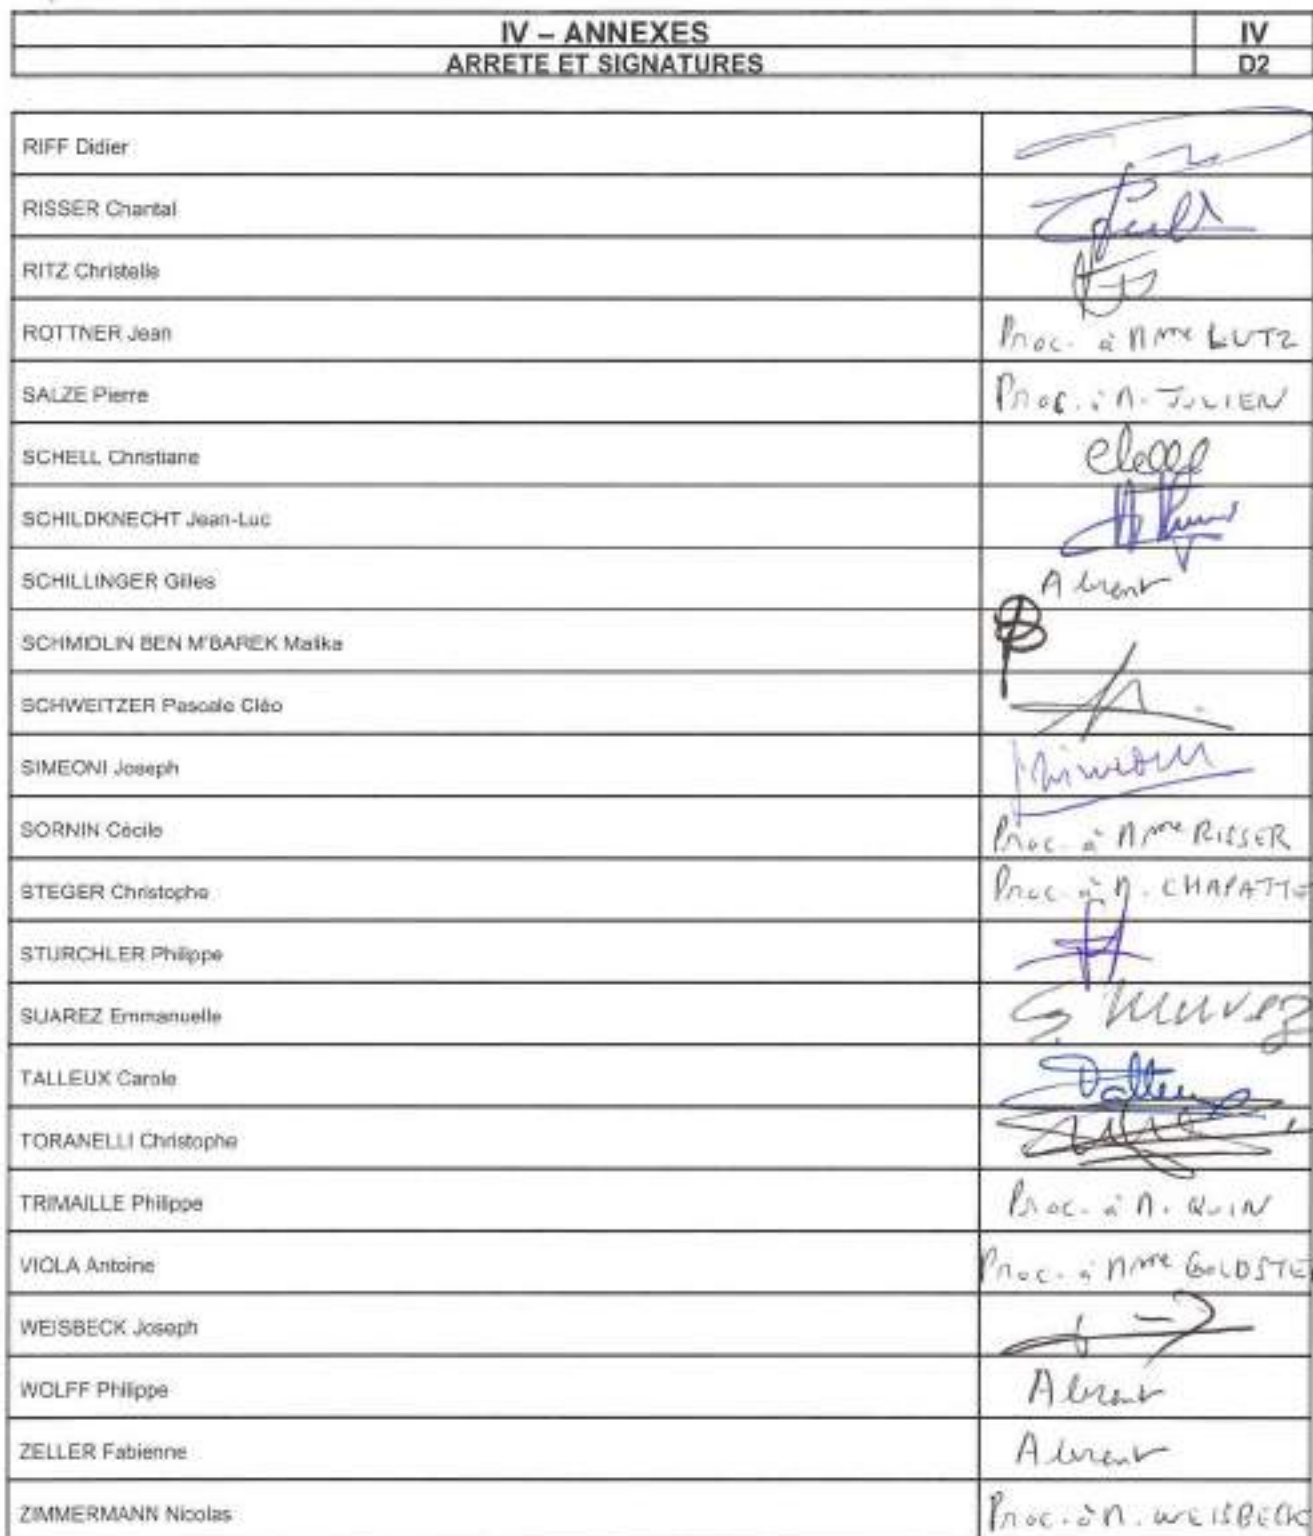 IV – ANNEXES IV
ARRETE ET SIGNATURES D2
RIFF Didier
RISSER Chantal
RITZ Christelle
ROTTNER Jean Proc. à Mme LUTZ
SALZE Pierre Proc. à M. JULIEN
SCHELL Christiane
SCHILDKNECHT Jean-Luc
SCHILLINGER Gilles Absent
SCHMIDLIN BEN M'BAREK Malika
SCHWEITZER Pascale Cléo
SIMEONI Joseph
SORNIN Cécile Proc. à Mme RISSER
STEGER Christophe Proc. à M. CHAPATTE
STURCHLER Philippe
SUAREZ Emmanuelle
TALLEUX Carole
TORANELLI Christophe
TRIMAILLE Philippe Proc. à M. QUIN
VIOLA Antoine Proc. à Mme GOLDSTE
WEISBECK Joseph
WOLFF Philippe Absent
ZELLER Fabienne Absent
ZIMMERMANN Nicolas Proc. à M. WEISBECK